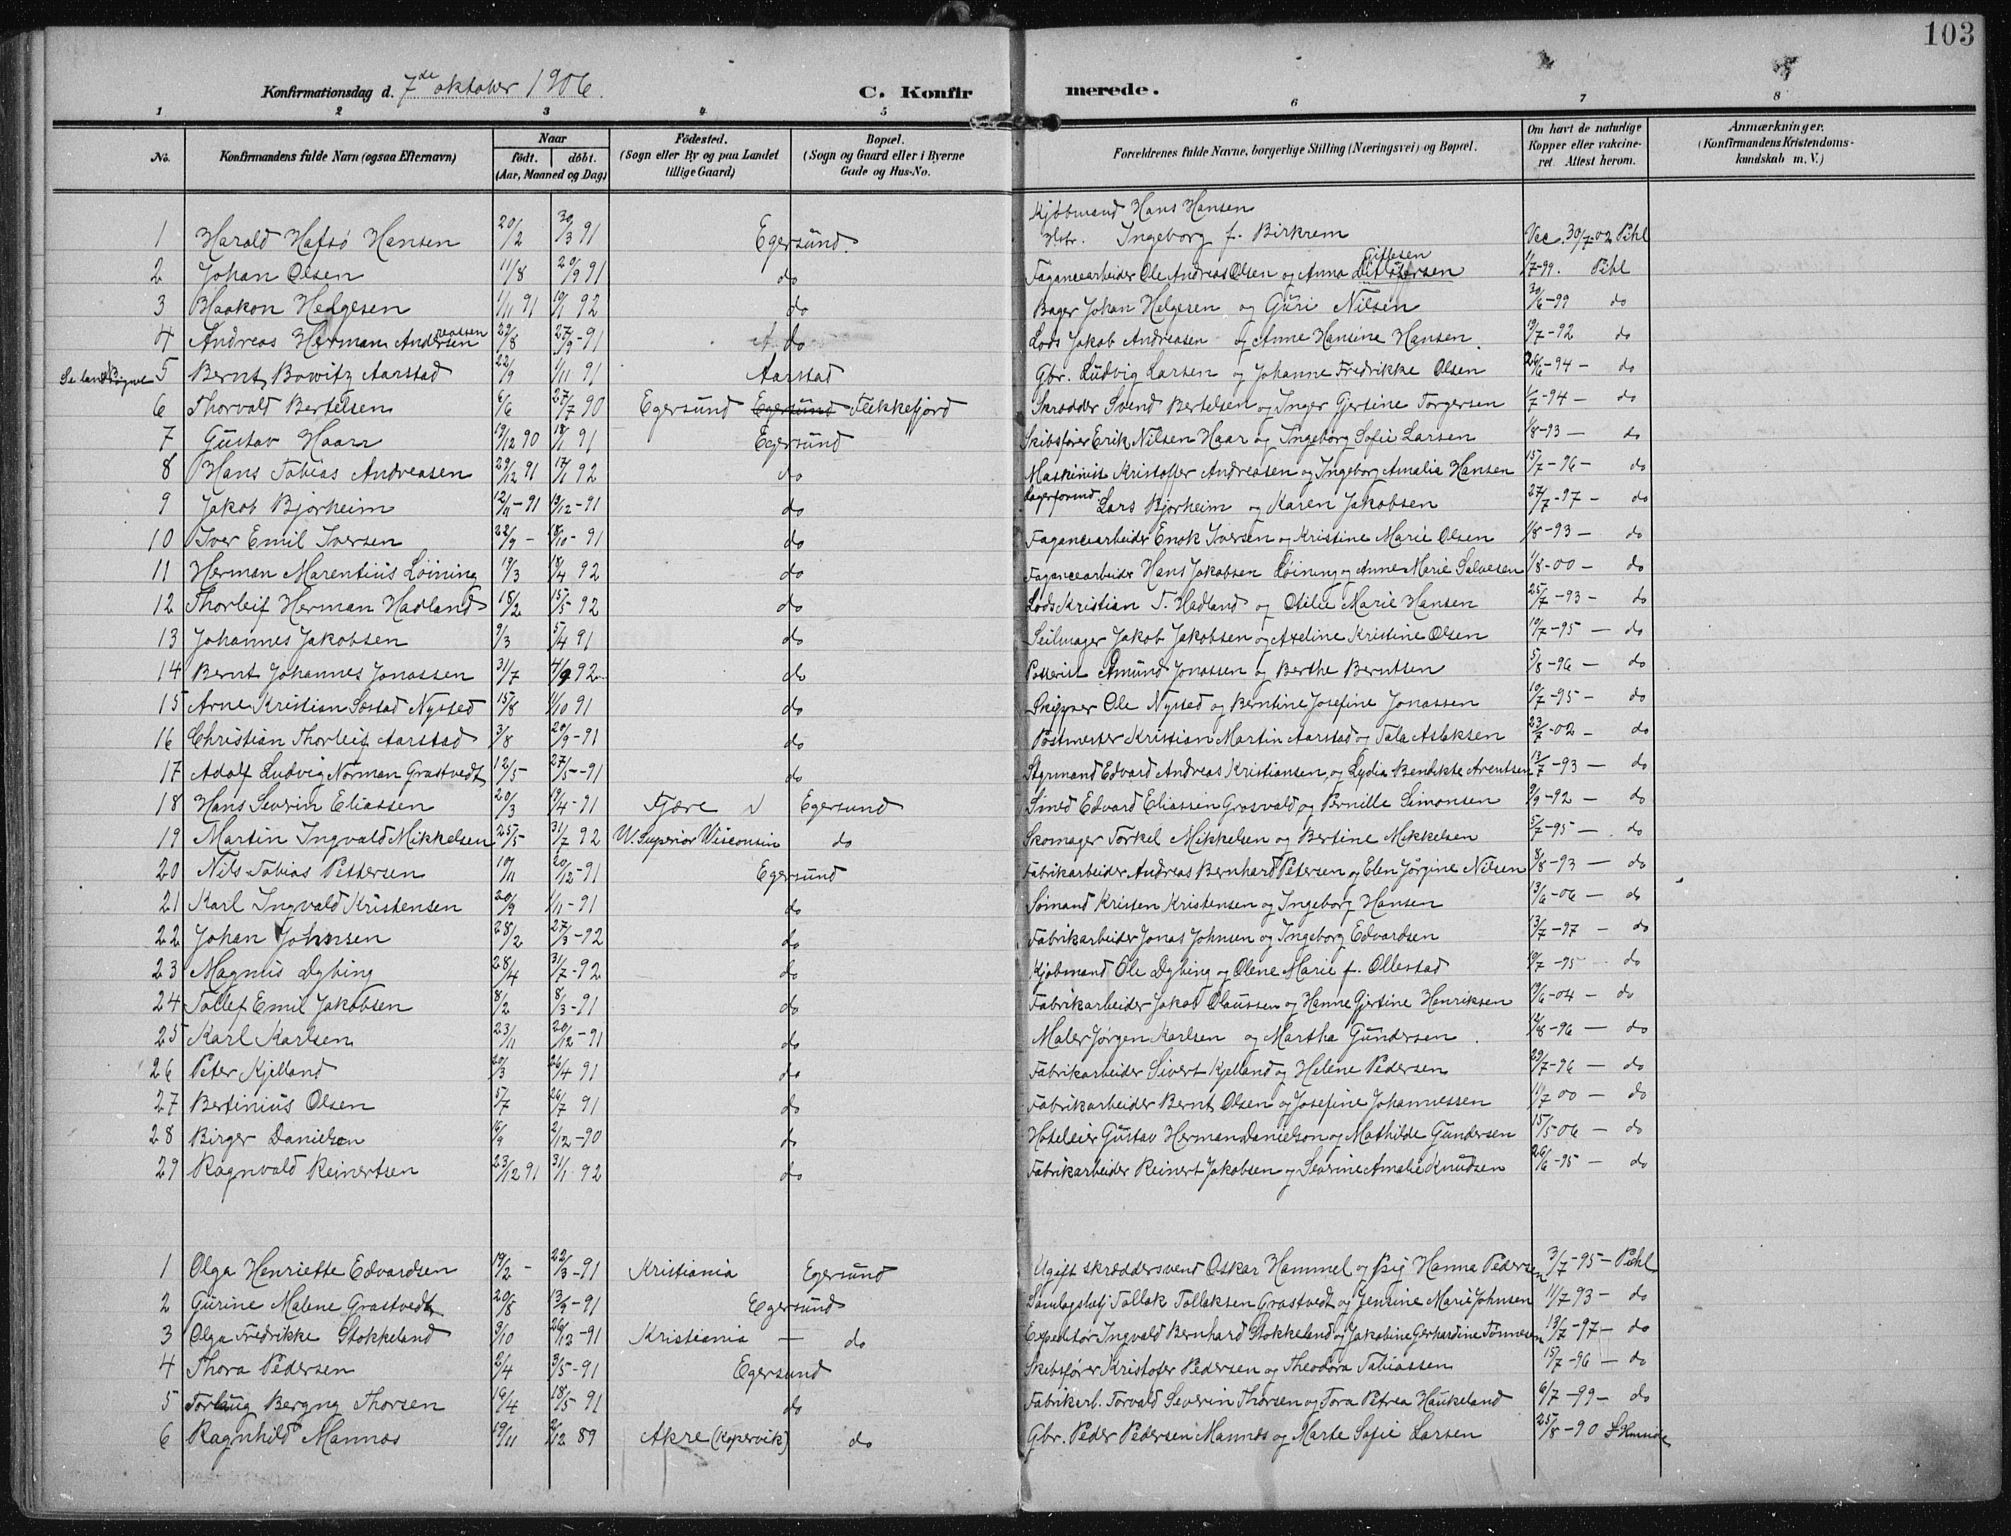 103
Konfirmationsdag d. 7de oktober 1906. C. Konfirmerede.
1 2 3 4 5 6 7 8
No. Konfirmandens fulde Navn (ogsaa Efternavn) Naar født. døbt. (Aar, Maaned og Dag) Fødested. (Sogn eller By og paa Landet tillige Gaard) Bopæl. (Sogn og Gaard eller i Byerne Gade og Hus-No. Forældrenes fulde Navne, borgerlige Stilling (Næringsvei) og Bopæl. Om havt de naturlige Kopper eller vakcineret. Attest herom. Anmærkninger. (Konfirmandens Kristendomskundskab m. V.)
1 Harald Hafsø Hansen 20/2 30/3 91 Egersund. Kjøbmand Hans Hansen Hstr. Ingeborg f. Birkrem Vac. 30/7-02 Pihl
2 Johan Olsen 11/8 20/9 91 do Fagancearbeider Ole Andreas Olsen og Anna 1/7-99. Pihl
3 Haakon Helgesen 1/11 91 10/1 92 do Bager Johan Helgesen og Guri Nilsen 30/6-99 do
4 Andreas Herman Andreassen 29/8 27/9-91 do Lods Jakob Andreasen og Anne Hansine Hansen. 19/7-92 do
5 Bernt Bowitz Aarstad 22/9 1/11 91 Aarstad Gbr. Ludvig Larsen og Johanne Fredrikke Olsen 26/6-94 - do
6 Thorvald Bertelsen 6/6 27/7 90 Egersund Egersund Flekkefjord Skrædder Svend Bertelsen og Inger Gjertine Torgersen 1/7-94 - do
7 Gustav Haar 13/12 90 18/1 91 Egersund Skibsfører Erik Nilsen Haar og Ingeborg Sofie Larsen 1/8-93 - do
8 Hans Tobias Andreasen 29/12 91 17/1 92 do Maskinist Kristoffer Andreasen og Ingeborg Amalia Hansen 15/7-96 - do
9 Jakob Bjørheim 12/11-91 13/12-91 do Lagerformd. Lars Bjørheim og Karen Jakobsen 27/7-97 - do
10 Iver Emil Iversen 22/9 - 18/10-91 do Fagancearbeider Enok Iversen og Kristine Marie Olsen 1/8-93 - do
11 Herman Marentius Løining 19/3 18/4 92 do Fagancearbeider Hans Jakobsen Løining og Anne Marie Salvesen 1/8-00 - do
12 Thorleif Herman Hadland 18/2 15/5 92 do Lods Kristian T. Hadland og Otilie Marie Hansen 25/7-93 - do
13 Johannes Jakobsen 9/3 5/4 91 do Seilmager Jakob Jakobsen og Axeline Kristine Olsen 19/7-95 - do
14 Bernt Johannes Jonassen 31/7 4/9 92 do Potterist Amund Jonassen og Berthe Berntsen 5/8-96 - do
15 Arne Kristian Søstad Nysted 15/8 1/10 91 do Skipper Ole Nysted og Berntine Josefine Jonassen 19/7-95 - do
16 Christian Thorleif Aarstad 3/8 20/9-91 do Postmester Kristian Martin Aarstad og Tala Aslaksen 23/7-02 - do
17 Adolf Ludvig Norman Grastvedt 12/5- 27/5-91 do Styrmand Edvard Andreas Kristiansen og Lydia Bendikte Arentsen 13/7-93 - do
18 Hans Severin Eliassen 20/3 19/4-91 Fjære Egersund Smed Edvard Eliassen Grosvald og Pernille Simonsen 9/9-92 - do
19 Martin Ingvald Mikkelsen 25/5 31/7 92 W. Superior Wisconsin do Skomager Torkel Mikkelsen og Bertine Mikkelsen 5/7-95 - do
20 Nils Tobias Pettersen 10/11 20/12-91 Egersund Fabrikarbeider Andreas Bernhard Petersen og Elen Jørgine Nilsen 8/8-93 - do
21 Karl Ingvald Kristensen 20/9 1/11-91 do Sømand Kristen Kristensen og Ingeborg Hansen 13/6-06 - do
22 Johan Johnsen 28/2 27/3-92 do Fabrikarbeider Jonas Johnsen og Ingeborg Edvardsen 13/7-97 - do
23 Magnus Dybing 28/4 31/7-92 do Kjøbmand Ole Dybing og Olene Marie f. Ollestad 19/7-95 - do
24 Tollef Emil Jakobsen 8/2 8/3-91 do Fabrikarbeider Jakob Olaussen og Hanne Gjertine Henriksen 19/6-04 - do
25 Karl Karlsen 23/11 20/12-91 do Maler Jørgen Karlsen og Martha Gundersen. 12/8-96 - do
26 Peter Kjelland 20/3 26/4 91 do Fabrikarbeider Sivert Kjelland og Helene Pedersen 29/7-96 - do
27 Bertinius Olsen 5/7 26/7 91 do Fabrikarbeider Bernt Olsen og Josefine Johannessen 11/7 00 - do
28 Birger Danielsen 16/9 2/12-90 do Hoteleier Gustav Herman Danielson og Mathilde Gundersen 15/5 06 - do
29 Ragnvald Reinertsen 23/12 91 31/1 92 do Fabrikarbeider Reinert Jakobsen og Severine Amalie Knudsen 26/6-95 - do
1 Olga Henriette Edvardsen 19/2 - 22/3-91 Kristiania Egersund Ugift skræddersvend Oskar Hammel og Pig Hanna Pedersen 3/7-95 - Pihl
2 Gurine Malene Grastvedt 20/8 13/9-91 Egersund Samlagsbetj Tollak Tollaksen Grastvedt og Jensine Marie Johnsen 11/7 93 - do
3 Olga Fredrikke Stokkeland 9/10 26/12-91 Kristiania - do Expeditør Ingvald Bernhard Stokkeland og Jakobine Gerhardine Tønnesen 13/7-97 - do
4 Thora Pedersen 2/4 3/5-91 Egersund Skibsfører Kristofer Pedersen og Theodora Tobiassen 15/7-96 - do
5 Torlaug Bergny Thorsen 16/4 18/5-91 do Fabrikarb. Torvald Severin Thorsen og Tora Petrea Haukeland 6/7-99 - do
6 Ragnhild Mannes 19/11 2/12 89 Akre (Kopervik) do Gbr. Peder Pedersen Mannes og Marte Sofie Larsen 25/8-90